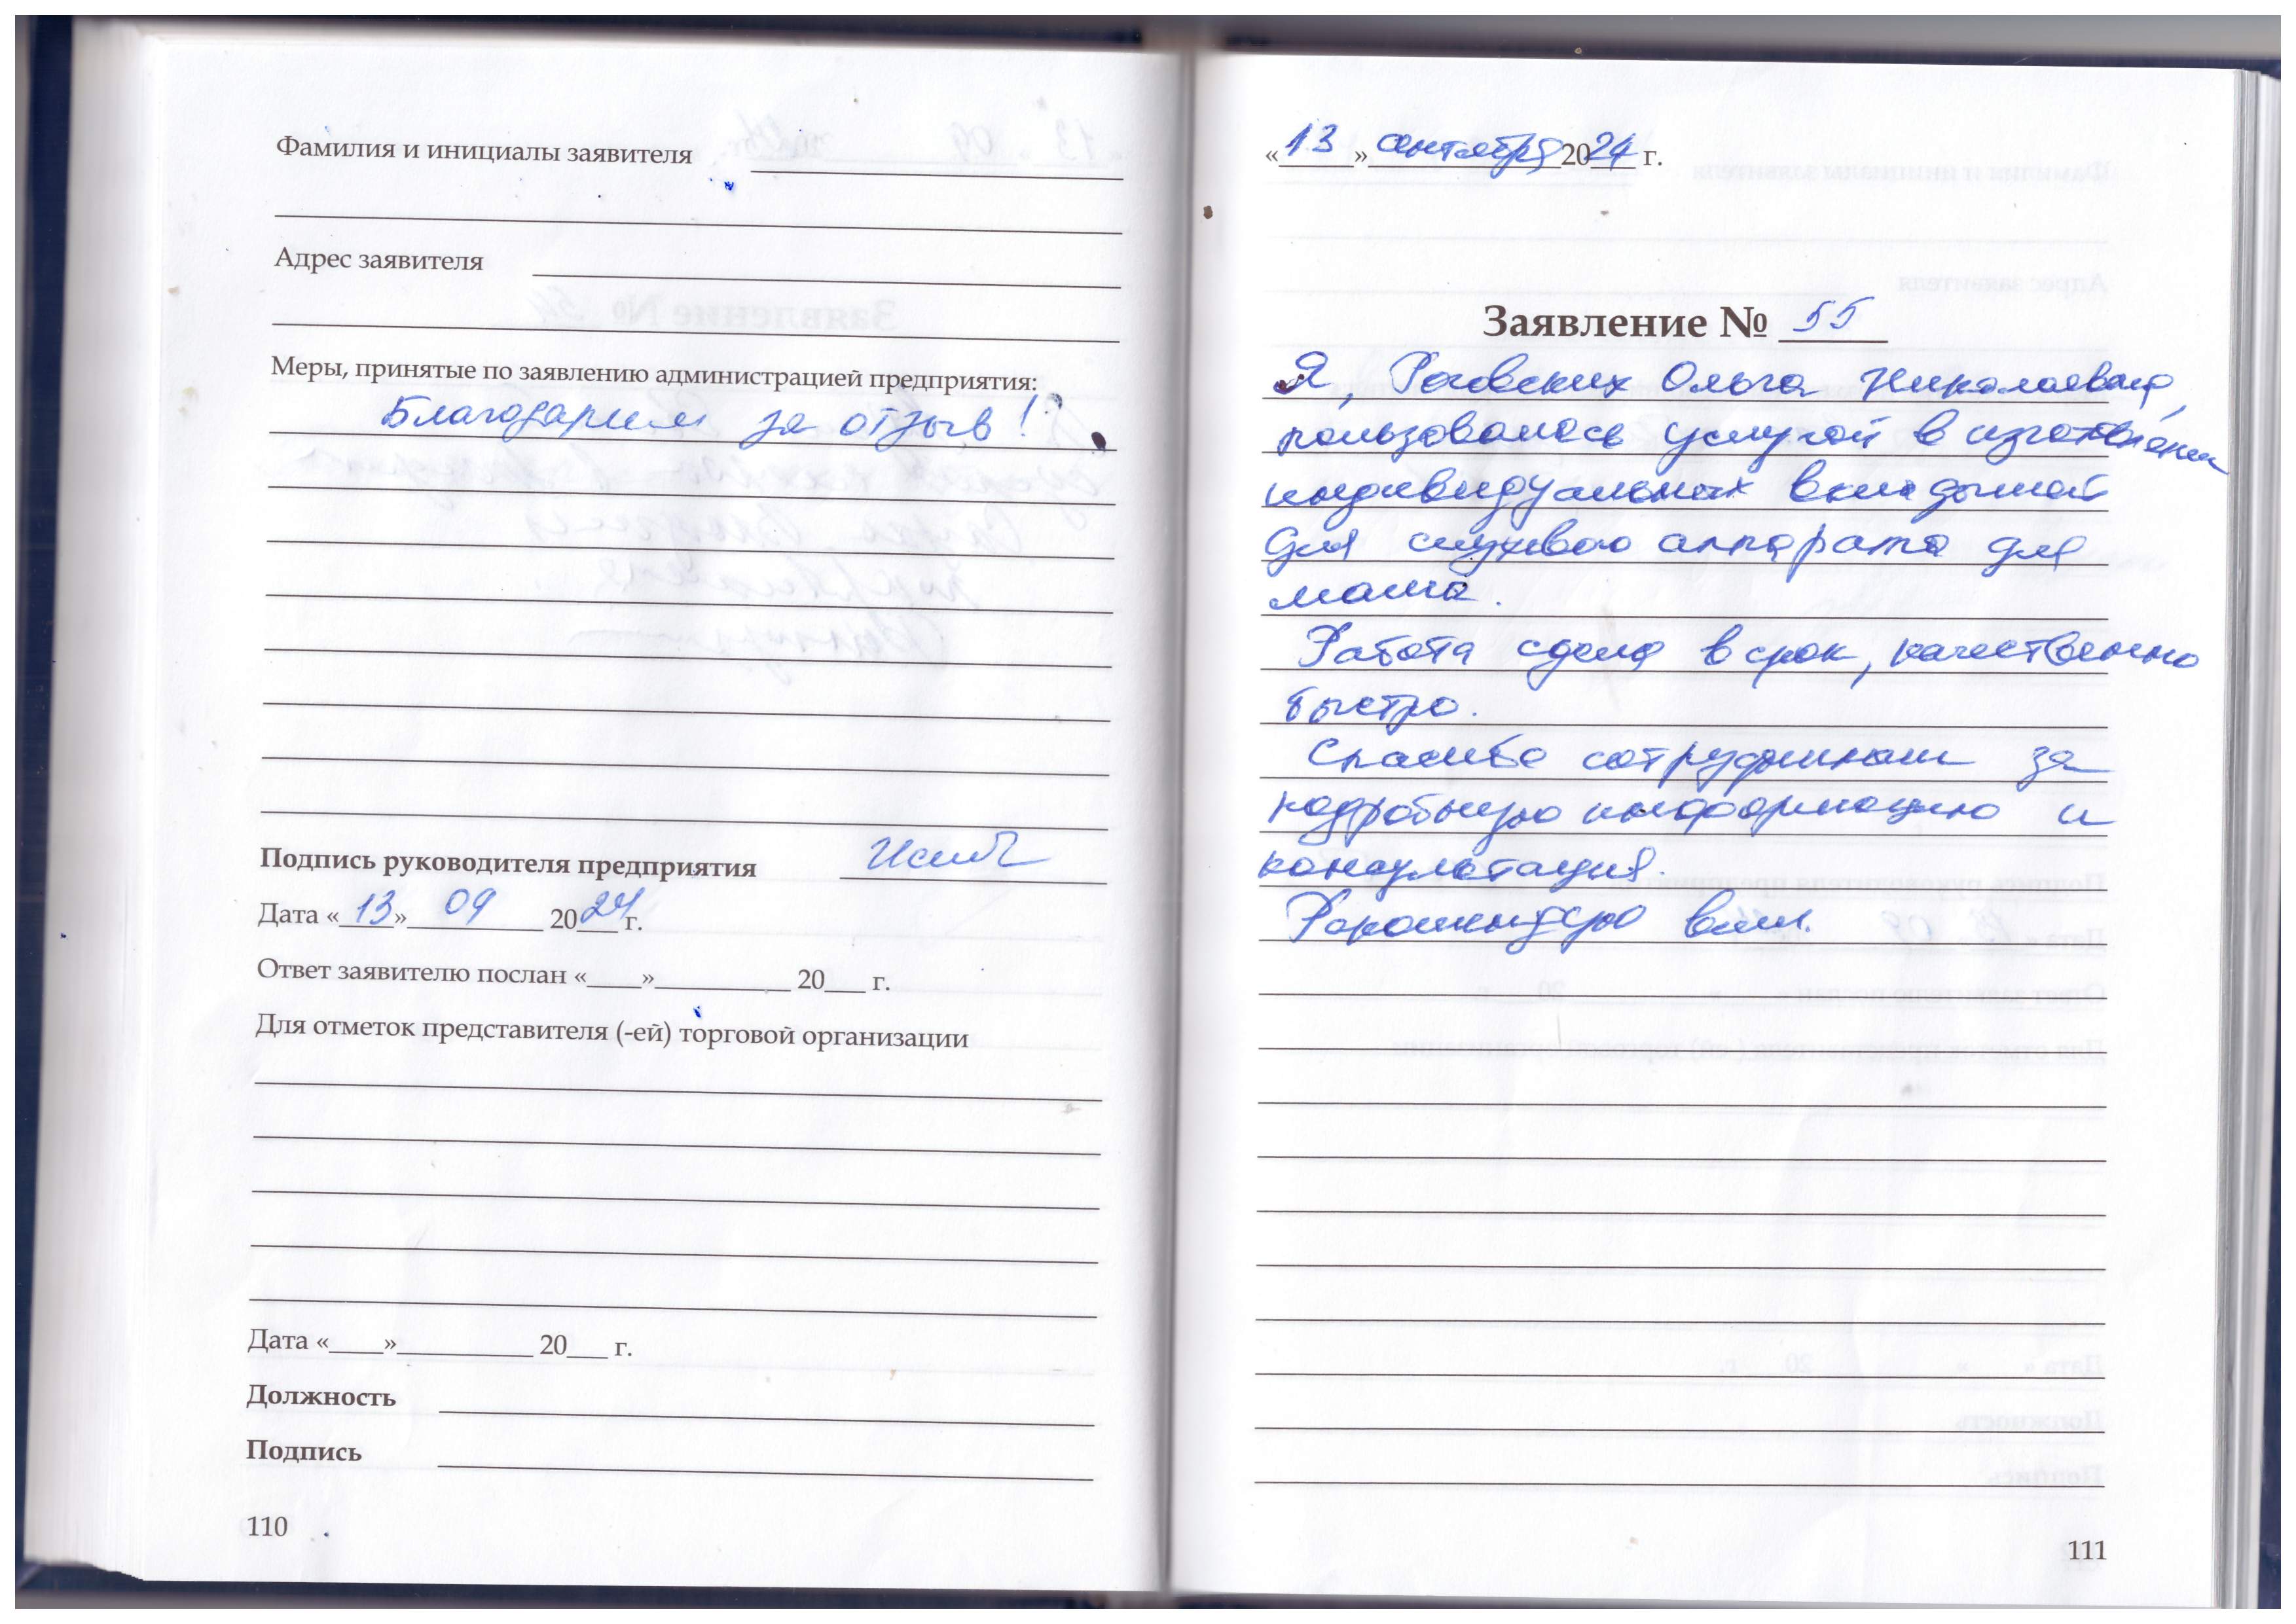 Фамилия и инициалы заявителя
Адрес заявителя
Меры, принятые по заявлению администрацией предприятия:
Благодарим за отзыв!
Подпись руководителя предприятия
Дата «13» 09 2024 г.
Ответ заявителю послан «____»__________ 20___ г.
Для отметок представителя (-ей) торговой организации
Дата «____»__________ 20___ г.
Должность
Подпись
110
«13» сентября 2024 г.
Заявление № 55
Я, Роговских Ольга Николаевна,
пользовалась услугой в изготовлении
индивидуальных вкладышей
для слухового аппарата для
мамы.
Работа сдана в срок, качественно
быстро.
Спасибо сотрудникам за
подробную информацию и
консультация.
Рекомендую вам.
111